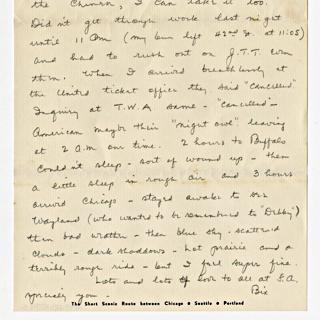 the Chinook, I can take it too.
Didn't get through work last night
until 11 pm (my bus left 42nd St. at 11:05)
and had to rush out on J.T.T. from
there. When I arrived breathlessly at
the United ticket office they said "Cancelled"
Inquiry at T.W.A. same - "Cancelled" -
American maybe their "night owl" leaving
at 2 a.m. on time. 2 hours to Buffalo
Couldn't sleep - sort of wound up - then
a little sleep in rough air and 3 hours
arrived Chicago - stayed awake to see
Wayland (who wants to be remembered to "Debby")
then bad weather - then blue sky - scattered
clouds - dark shadows - hot prairie and a
terribly rough ride - but I feel super fine.
Lots and lots of love to all at S.A.
specially you - Bix
The Short Scenic Route between Chicago • Seattle • Portland